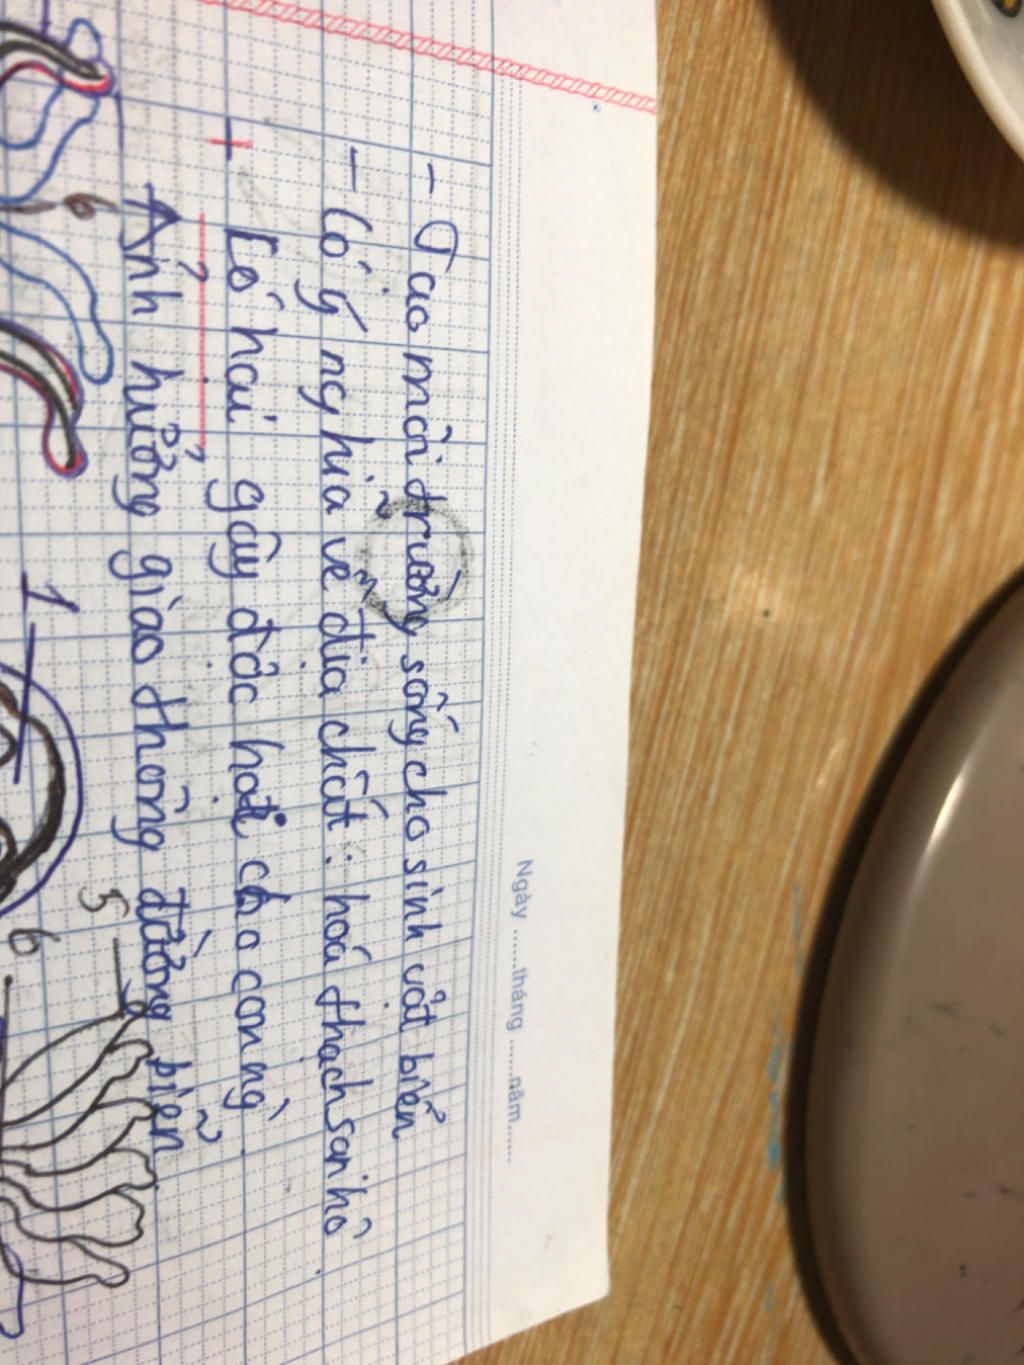 Ngày ......tháng ......năm......
- Tạo môi trường sống cho sinh vật biển
- Có ý nghĩa về địa chất : hoá thạch san hô
+ Có hại gây độc hại cho con ng`
Ảnh hưởng giao thông đường biển
6
1
5
6